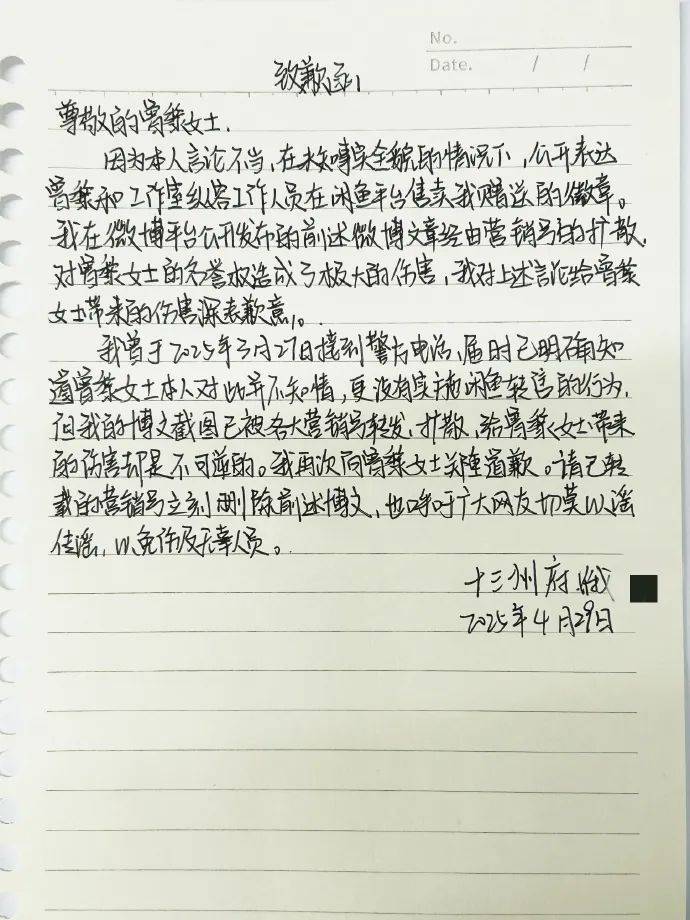 No.
Date. / /
致歉函
尊敬的曾黎女士.
因为本人言论不当,在未知事实全貌的情况下,公开表达
曾黎和工作室纵容工作人员在闲鱼平台售卖我赠送的徽章。
我在微博平台公开发布的前述微博文章经由营销号的扩散,
对曾黎女士的名誉权造成了极大的伤害,我对上述言论给曾黎
女士带来的伤害深表歉意。
我曾于2025年3月27日接到警方电话,届时已明确知
道曾黎女士本人对此并不知情,更没有实施闲鱼转售的行为,
但我的博文截图已被各大营销号转发、扩散,给曾黎女士带来
的伤害却是不可逆的。我再次向曾黎女士诚挚道歉。请已转
载的营销号立刻删除前述博文,也呼吁广大网友切莫以谣
传谣,以免伤及无辜人员。
十三州府
2025年4月29日